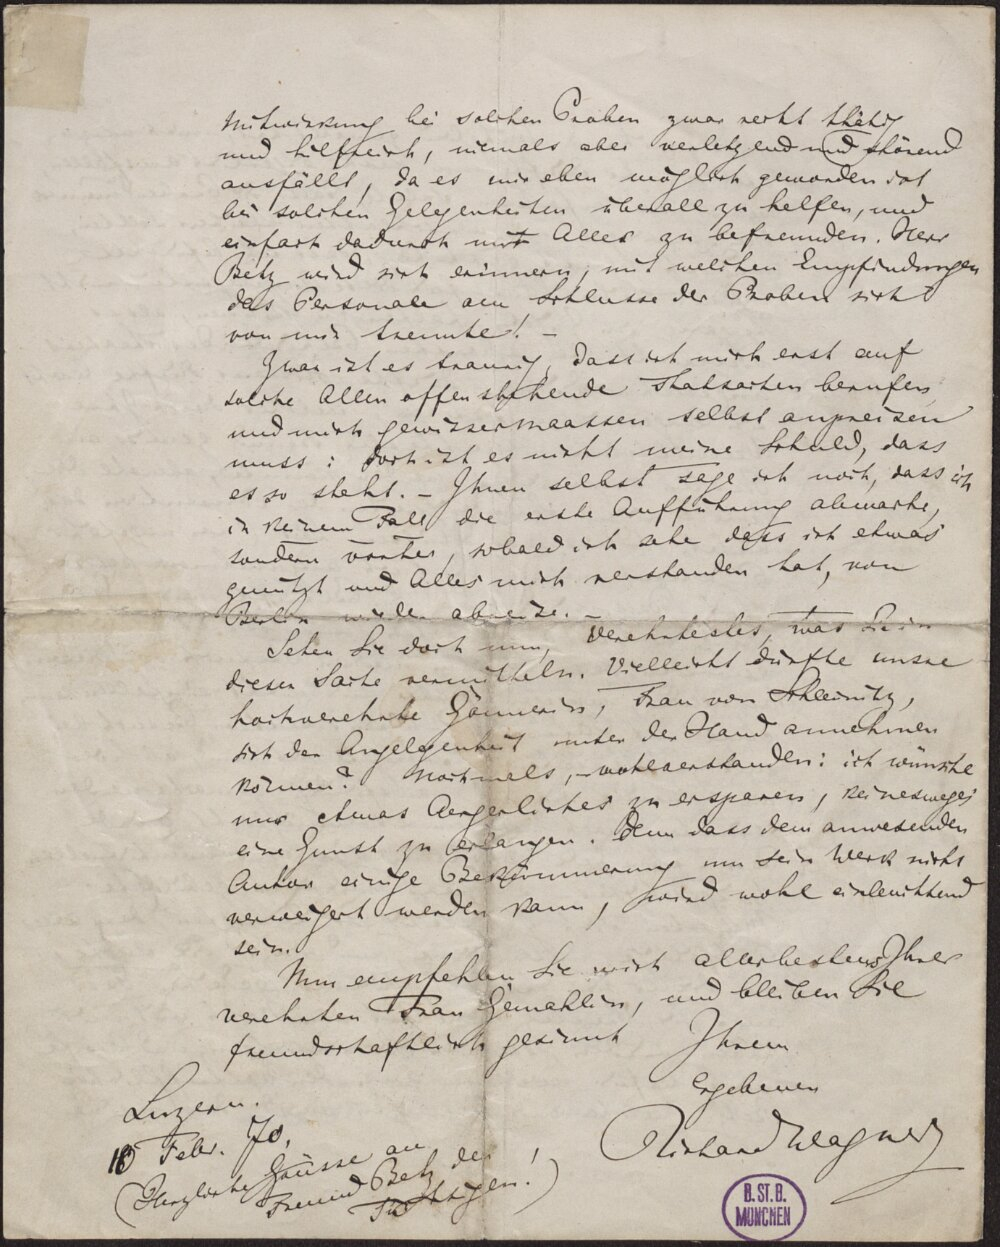 Mitwirkung bei solchen Proben zwar recht thätig
und hilfreich, niemals aber verletzend und störend
ausfällt, da es mir eben möglich geworden ist
bei solchen Gelegenheiten überall zu helfen, und
einfach dadurch mit Alles zu befreunden. Herr
Betz wird sich erinnern, mit welchen Empfindungen
das Personale am Schlusse der Proben sich
von mir trennte! –
Zwar ist es traurig, dass ich mich erst auf
solche Allen offen stehende Thatsachen berufen,
und mich gewissermaassen selbst anpreisen
muss: doch ist es nicht meine Schuld, dass
es so steht. – Ihnen selbst sage ich noch, dass ich
in keinem Fall die erste Aufführung abwarte,
sondern vorher, sobald ich sehe dass ich etwas
genützt und Alles mich verstanden hat, von
Berlin wieder abreise. –
Sehen Sie doch nun, Verehrtester, was Sie in
dieser Sache vermitteln. Vielleicht dürfte unsre
hochverehrte Gönnerin, Frau von Schleinitz,
sich der Angelegenheit unter der Hand annehmen
können? Nochmals, – wohlverstanden: ich wünsche
nur etwas Aergerliches zu ersparen, keinesweges
eine Gunst zu erlangen. Denn dass dem anwesenden
Autor einige Bekümmerung um sein Werk nicht
verweigert werden kann, wird wohl einleuchtend
sein.
Nun empfehlen Sie mich allerbestens Ihrer
verehrten Frau Gemahlin, und bleiben Sie
freundschaftlich gesinnt Ihrem
Ergebenen
Richard Wagner
Luzern.
18 Febr. 70.
(Herzliche Grüsse an
Freund Betz den
Tüchtigen!)
B. ST. B.
MÜNCHEN